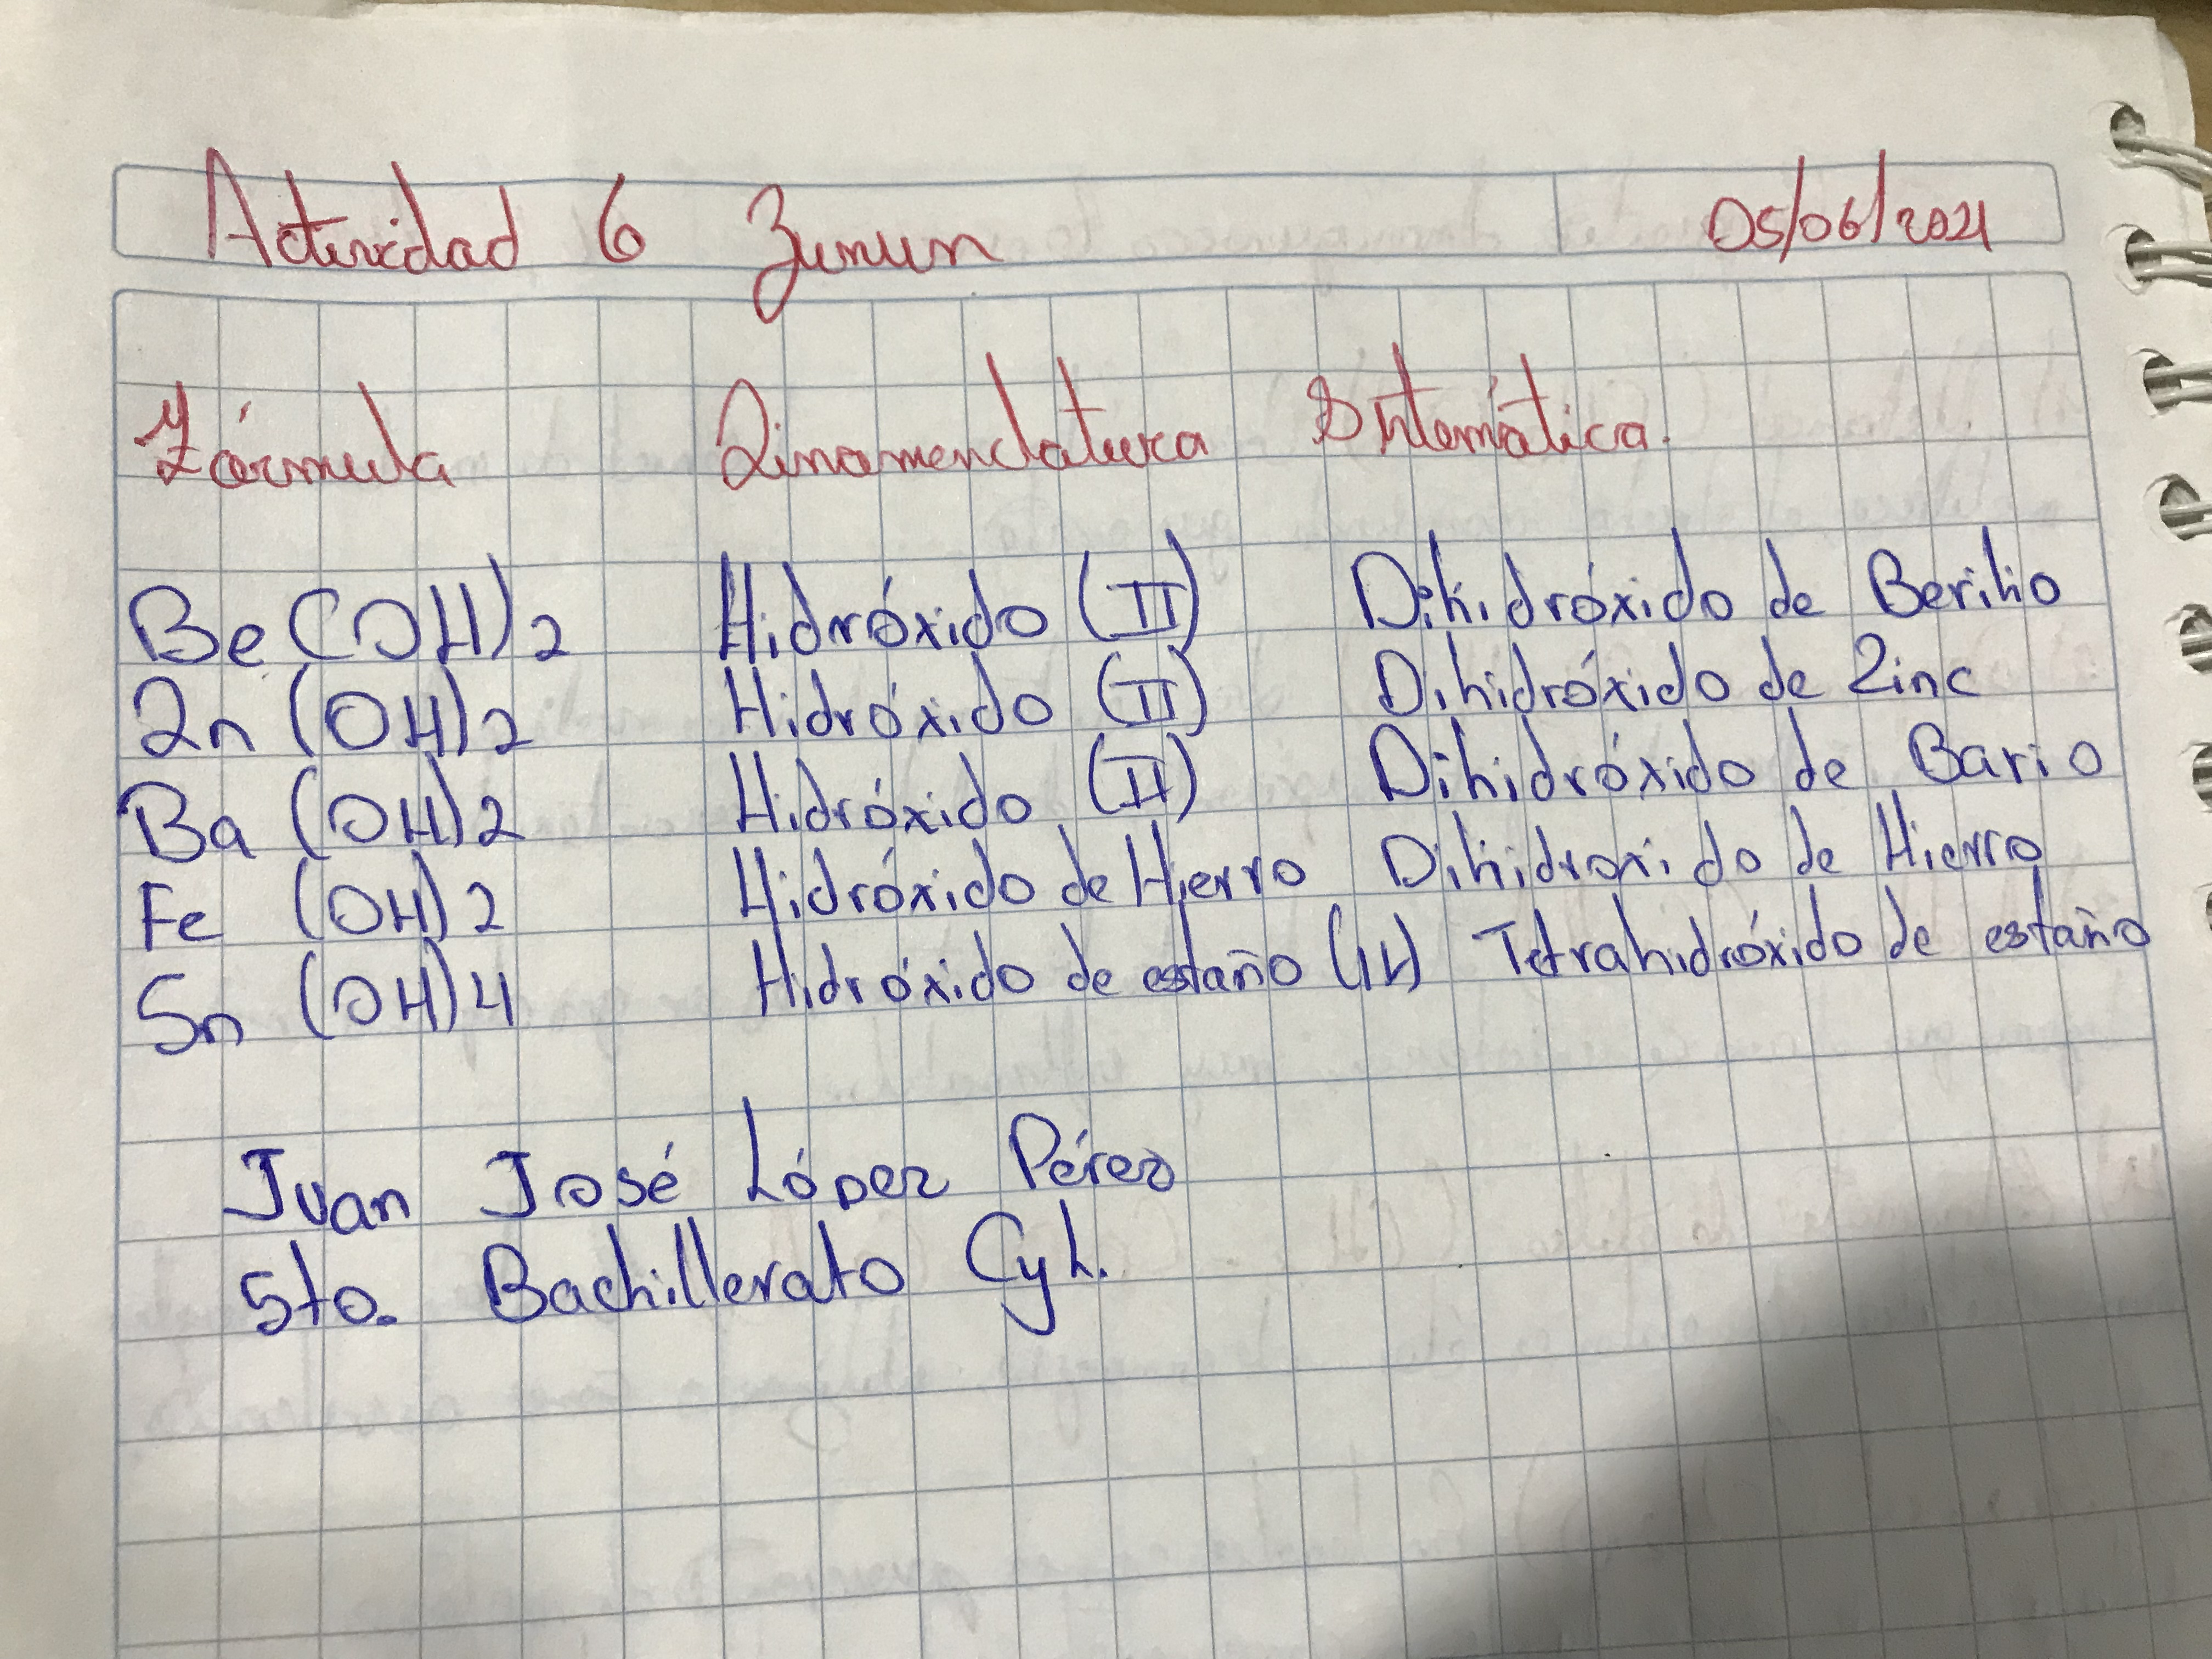 Actividad 6 Zunun 05/06/2021
Fórmula Qinomenclatura Sistemática.
Be (OH)2 Hidróxido (II) Dihidróxido de Berilio
Zn (OH)2 Hidróxido (II) Dihidróxido de Zinc
Ba (OH)2 Hidróxido (II) Dihidróxido de Bario
Fe (OH)2 Hidróxido de Hierro Dihidroxido de Hierro
Sn (OH)4 Hidróxido de estaño (IV) Tetrahidróxido de estaño
Juan José López Pérez
5to. Bachillerato CyL.